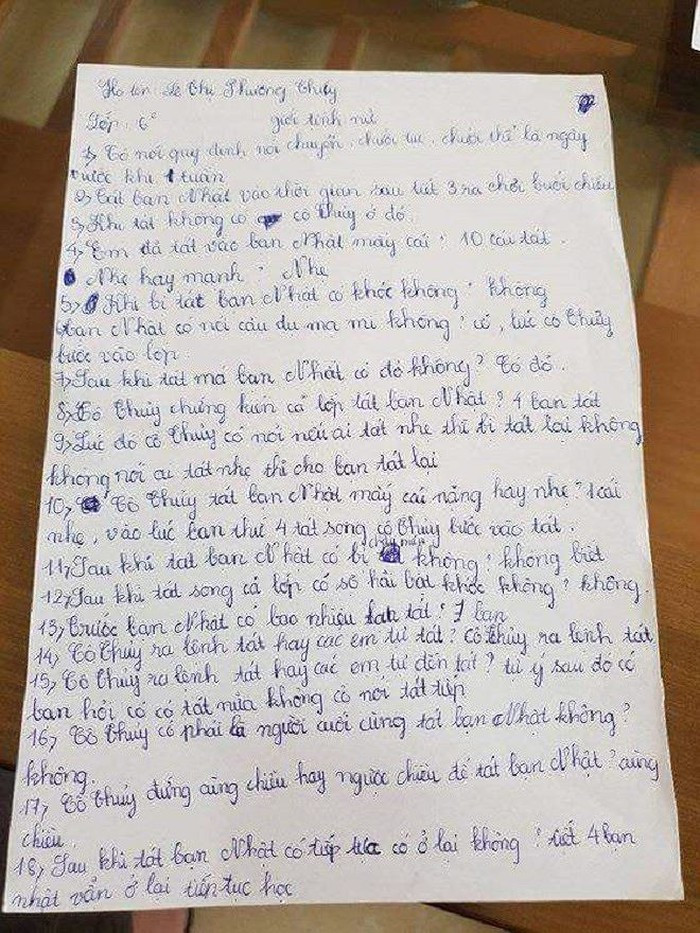 Họ tên: Lê Thị Phương Thủy
Lớp: 6² giới tính nữ
1, Cô nói quy định nói chuyện, chửi tục, chửi thề là ngày
trước khi 1 tuần
2, Tát bạn Nhật vào thời gian sau tiết 3 ra chơi buổi chiều
3, Khi tát không có cô Thủy ở đó.
4, Em đã tát vào bạn Nhật mấy cái? 10 cái tát.
Nhẹ hay mạnh? Nhẹ
5, Khi bị tát bạn Nhật có khóc không? không
6, bạn Nhật có nói câu du ma mi không? có, lúc cô Thủy
bước vào lớp
7, Sau khi tát má bạn Nhật có đỏ không? Có đỏ.
8, Cô Thủy chứng kiến cả lớp tát bạn Nhật? 4 bạn tát
9, Lúc đó cô Thủy có nói nếu ai tát nhẹ thì bị tát lại không
không nói ai tát nhẹ thì cho bạn tát lại
10, Cô Thủy tát bạn Nhật mấy cái nặng hay nhẹ? 1 cái
nhẹ, vào lúc bạn thứ 4 tát song cô Thủy bước vào tát.
11, Sau khi tát bạn Nhật có bị chảy máu không? không biết
12, Sau khi tát song cả lớp có sợ hãi bật khóc không? không.
13, Trước bạn Nhật có bao nhiêu bạn tát? 7 bạn
14, Cô Thủy ra lệnh tát hay các em tự tát? Cô Thủy ra lệnh tát
15, Cô Thủy ra lệnh tát hay các em tự đến tát? tự ý sau đó có
bạn hỏi có có tát nữa không cô nói tát tiếp
16, Cô Thủy có phải là người cuối cùng tát bạn Nhật không?
không.
17, Cô Thủy đứng cùng chiều hay ngược chiều để tát bạn Nhật? cùng
chiều.
18, Sau khi tát bạn Nhật có tiếp tục có ở lại không? tiết 4 bạn
nhật vẫn ở lại tiến tục học